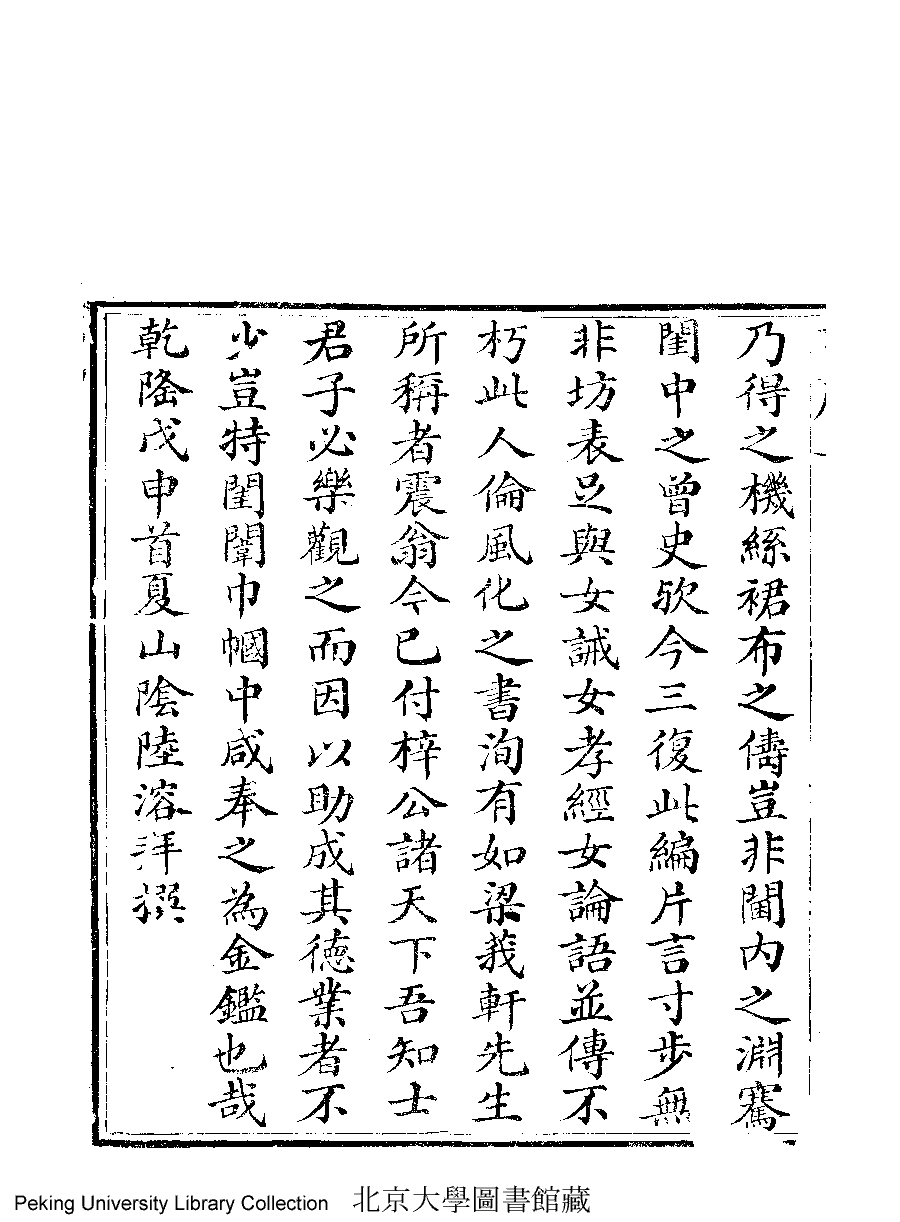 乃得之機絲裙布之儔豈非閫内之淵騫
閨中之曾史歟今三復此編片言寸步無
非坊表足與女誡女孝經女論語並傳不
朽此人倫風化之書洵有如梁莪軒先生
所稱者震翁今已付梓公諸天下吾知士
君子必樂觀之而因以助成其德業者不
少豈特閨闈巾幗中咸奉之為金鑑也哉
乾隆戊申首夏山陰陸溶拜撰
Peking University Library Collection 北京大學圖書館藏